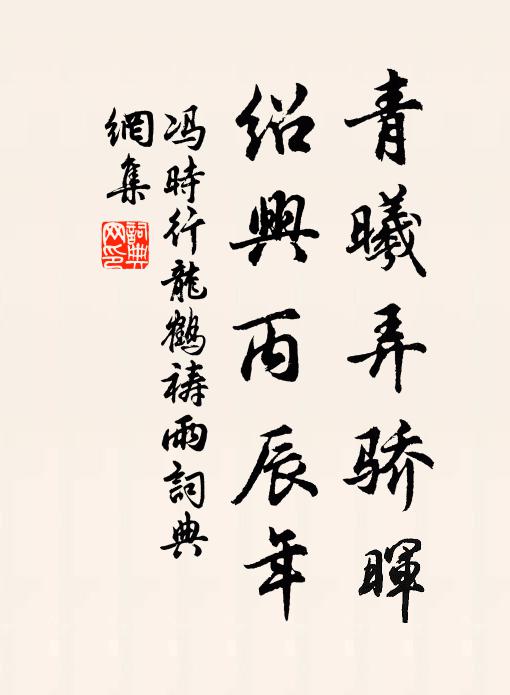 青曦弄骄暉
绍興丙辰年
冯時行龍鶴祷雨詞典
網集
詞典網印